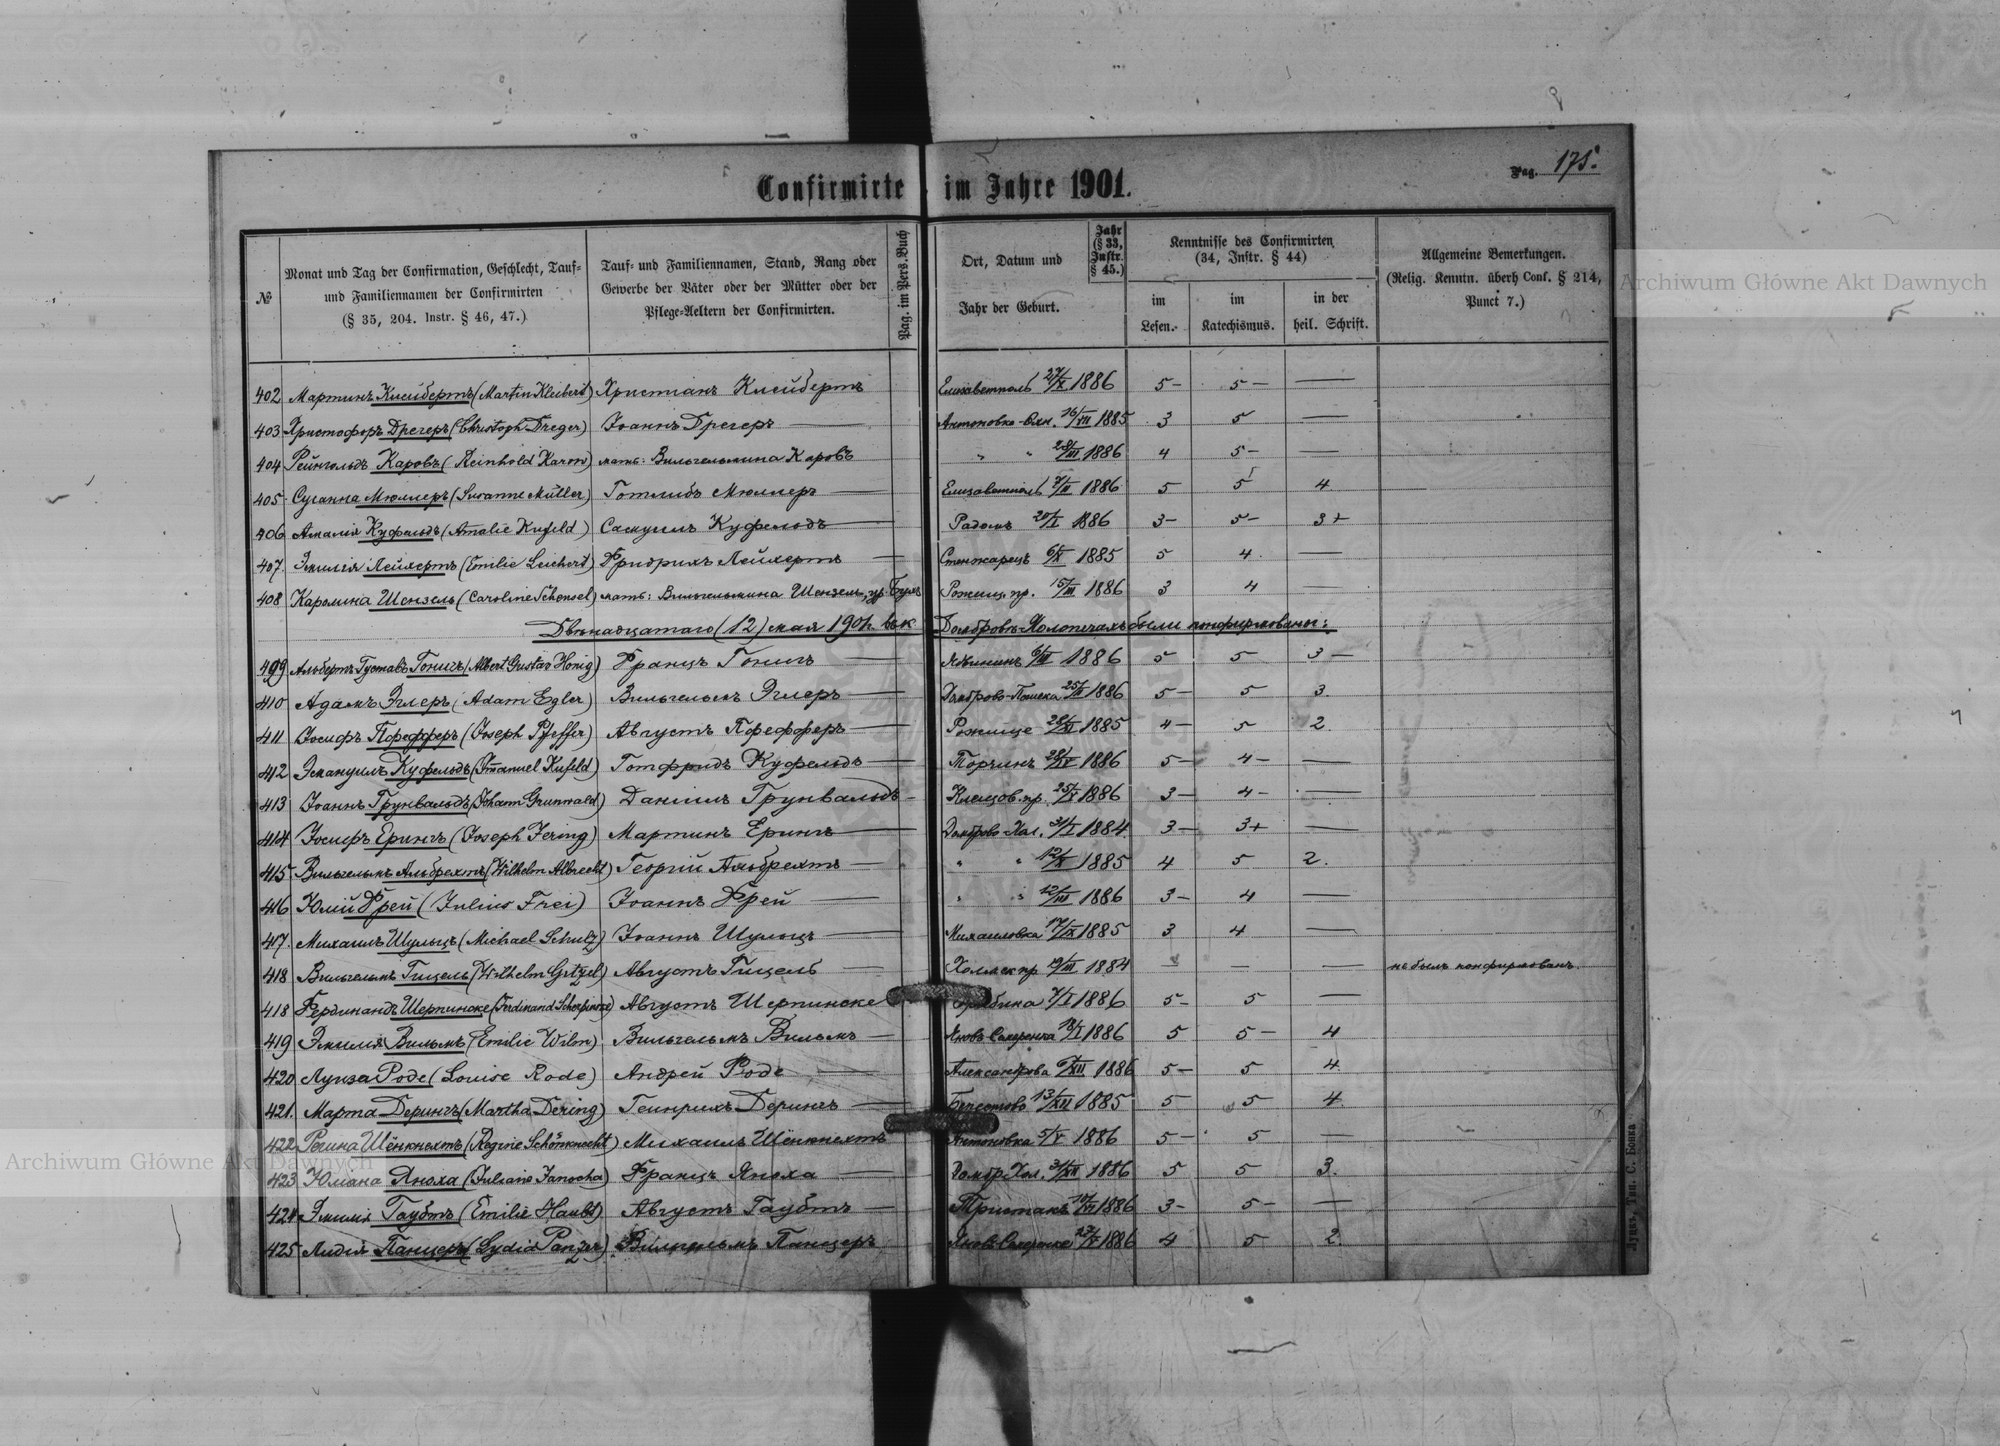 Pag. 175.
Confirmirte im Jahre 1901.
№
Monat und Tag der Confirmation, Geschlecht, Tauf-
und Familiennamen der Confirmirten
(§ 35, 204. Instr. § 46, 47.)
Tauf- und Familiennamen, Stand, Rang oder
Gewerbe der Väter oder der Mütter oder der
Pflege-Aeltern der Confirmirten.
Pag. im Pers. Buch
Ort, Datum und
Jahr der Geburt.
Jahr
(§ 33,
Instr.
§ 45.)
Kenntnisse des Confirmirten
(34, Instr. § 44)
im
Lesen.
im
Katechismus.
in der
heil. Schrift.
Allgemeine Bemerkungen.
(Relig. Kenntn. überh Conf. § 214,
Punct 7.)
Archiwum Główne Akt Dawnych
402 Мартинъ Клейбертъ (Martin Kleibert) Христіанъ Клейбертъ Елизаветполь 27/X 1886 5- 5- —
403 Христофоръ Дрегеръ (Christoph Dreger) Іоаннъ Дрегеръ — Антоновка 16/VII 1885 3 5 —
404 Рейнгольдъ Каровъ (Reinhold Karow) мать: Вильгельмина Каровъ " " 28/III 1886 4 5- —
405 Сусанна Мюллеръ (Susanne Müller) Готлибъ Мюллеръ — Елизаветполь 1886 5 5 4
406 Амалія Куфельдъ (Amalie Kufeld) Самуилъ Куфельдъ — Радомъ 20/I 1886 3- 5- 3+
407. Эмилія Лейхертъ (Emilie Leichert) Фридрихъ Лейхертъ — Стенжарецъ 6/XI 1885 5 4. —
408 Каролина Шензель (Caroline Schensel) мать: Вильгельмина Шензель, Рожищ. пр. 15/III 1886 3 4 —
Двѣнадцатаго (12) мая 1901 г. въ к Домбровѣ-Холопечахъ были конфирмованы:
499 Альбертъ Густавъ Гонигъ (Albert Gustav Honig) Францъ Гонигъ — 6/III 1886 5 5 3 —
410 Адамъ Эглеръ (Adam Egler) Вильгельмъ Эглеръ — 1886 5- 5 3.
411 Іосифъ Пфефферъ (Joseph Pfeffer) Августъ Пфефферъ — Рожище 1885 4- 5 2
412 Эмануилъ Куфельдъ (Imanuel Kufeld) Готфридъ Куфельдъ — Торчинъ 28/IV 1886 5- 4- —
413 Іоаннъ Грунвальдъ (Johann Grunwald) Даніилъ Грунвальдъ - 25/X 1886 3- 4- —
414 Іосифъ Ерингъ (Joseph Jering) Мартинъ Ерингъ — Домброво-Хол. 31/I 1884 3- 3+ —
415 Вильгельмъ Альбрехтъ (Wilhelm Albrecht) Георгій Альбрехтъ — " " 12/X 1885 4 5 2.
416 Юлій Фрей (Julius Frei) Іоаннъ Фрей — " " 12/III 1886 3- 4 —
417. Михаилъ Шульцъ (Michael Schulz) Іоаннъ Шульцъ — Михайловка 17/IX 1885 3 4 —
418 Вильгельмъ Гицель (Wilhelm Gitzel) Августъ Гицель — 19/III 1884 — — — не былъ конфирмованъ.
418 Фердинандъ Шерпинске (Ferdinand Scherpinske) Августъ Шерпинске 7/I 1886 5- 5 —
419 Эмилія Вильмъ (Emilie Wilm) Вильгельмъ Вильмъ — 18/I 1886 5 5- 4
420 Луиза Роде (Louise Rode) Андрей Роде — Александрова 6/XII 1886 5- 5 4.
421. Марта Дерингъ (Martha Dering) Генрихъ Дерингъ — 13/XII 1885 5 5 4.
422 Регина Шёнкнехтъ (Regine Schönknecht) Михаилъ Шёнкнехтъ Антоновка 5/V 1886 5- 5 —
423 Юліана Яноха (Juliane Janocha) Францъ Яноха — Домбр. Хол. 31/XII 1886 5 5 3.
424 Эмилія Гаубтъ (Emilie Haubt) Августъ Гаубтъ — Тристакъ 10/VI 1886 3- 5- —
425 Лидія Панцеръ (Lydia Panzer) Вильгельмъ Панцеръ 23/V 1886 4 5 2.
Луцкъ, Тип. С. Бонка
Archiwum Główne Akt Dawnych